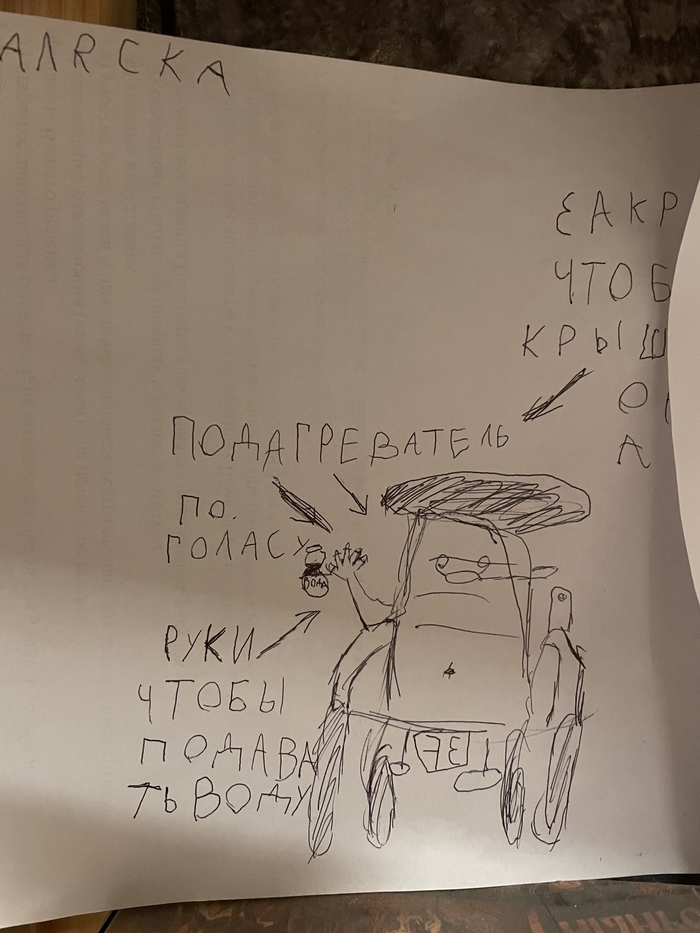 АЛЯСКА
ЕАКР
ЧТОБ
КРЫШ
А
ПОДАГРЕВАТЕЛЬ
ПО.
ГОЛАСУ
ВОДА
РУКИ
ЧТОБЫ
ПОДАВА
ТЬ ВОДУ